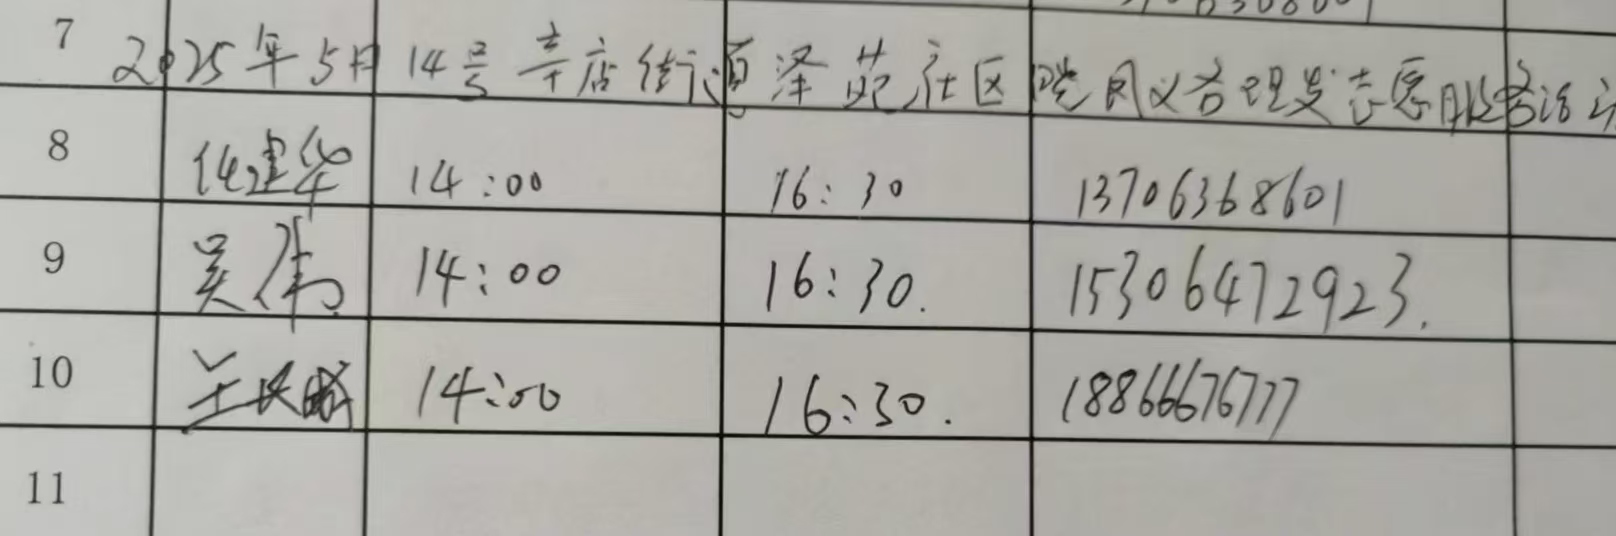 7 2025年5月14号辛店街道泽苑社区晓风义务理发志愿服务活动
8 任建华 14:00 16:30 13706368601
9 吴伟 14:00 16:30. 15306472923.
10 14:00 16:30. 18866676777
11